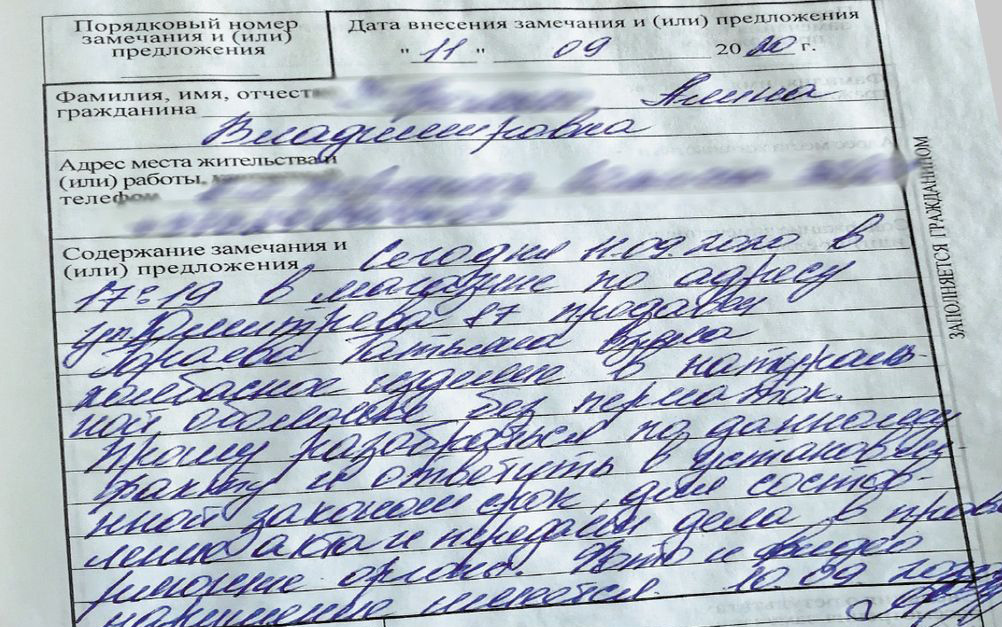 Порядковый номер
замечания и (или)
предложения
Дата внесения замечания и (или) предложения
"11" 09 2020 г.
Фамилия, имя, отчест
гражданина
Алина
Владимировна
Адрес места жительства и
(или) работы,
телефон
Содержание замечания и
(или) предложения
Сегодня 11.09.2020 в
17:19 в магазине по адресу
ул Дмитрева 87 продавец
Татьяна
колбасное изделие в натураль-
ной оболочке без перчаток.
Прошу разобраться по данному
факту и ответить в установлен
нной законом срок, для состав-
ления акта и передаči дела в
органы. Фото и видео
нарушения имеется. 10.09
ЗАПОЛНЯЕТСЯ ГРАЖДАНИНОМ